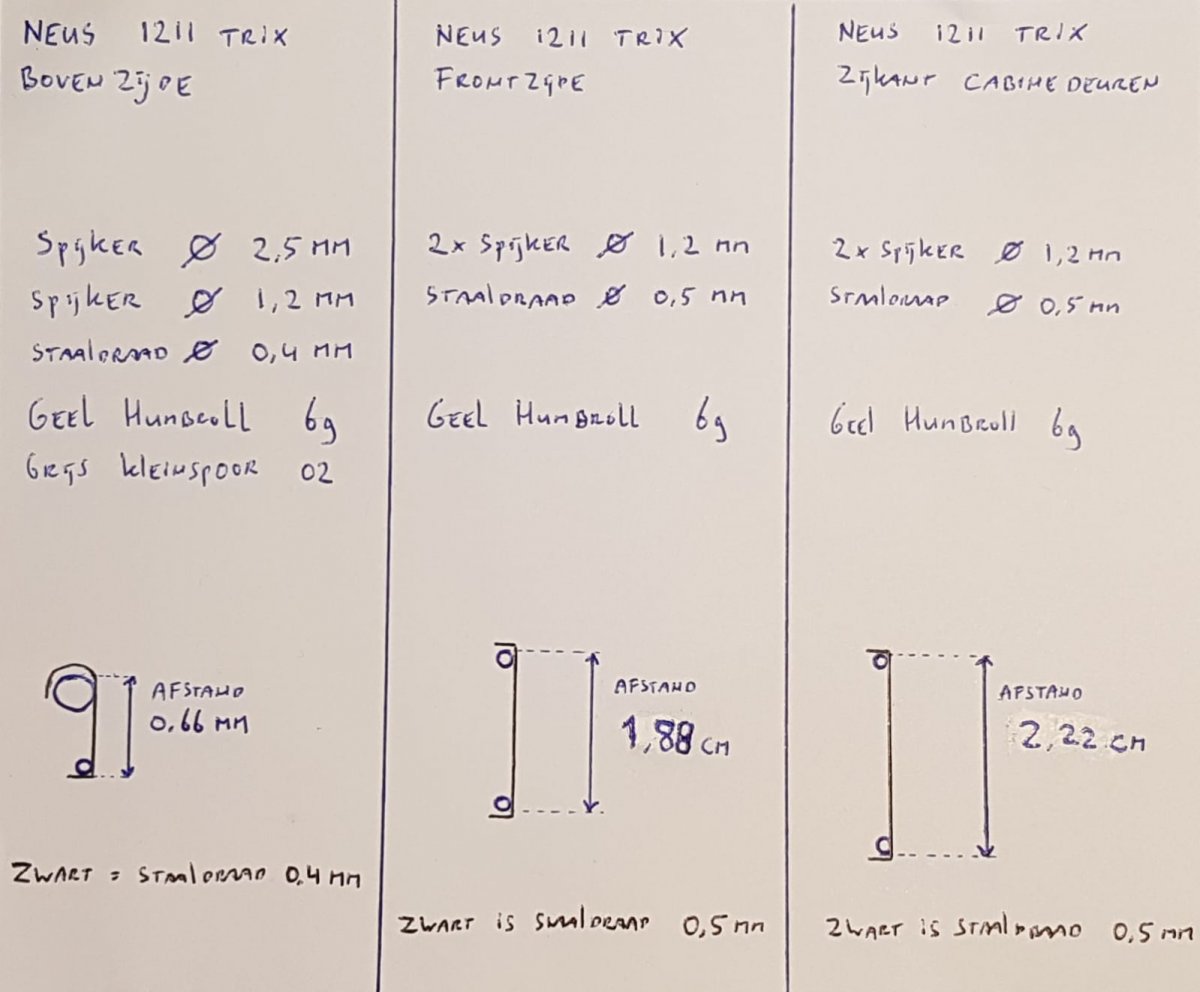 NEUS 1211 TRIX
BOVENZIJDE
SPIJKER Ø 2,5 MM
SPIJKER Ø 1,2 MM
STAALDRAAD Ø 0,4 MM
GEEL HUMBROLL 69
GRIJS KLEINSPOOR 02
AFSTAND
0,66 MM
ZWART = STAALDRAAD 0,4 MM
NEUS 1211 TRIX
FRONTZIJDE
2x SPIJKER Ø 1,2 MM
STAALDRAAD Ø 0,5 MM
GEEL HUMBROLL 69
AFSTAND
1,88 CM
ZWART IS STAALDRAAD 0,5 MM
NEUS 1211 TRIX
ZIJKANT CABINE DEUREN
2x SPIJKER Ø 1,2 MM
STAALDRAAD Ø 0,5 MM
GEEL HUMBROLL 69
AFSTAND
2,22 CM
ZWART IS STAALDRAAD 0,5 MM